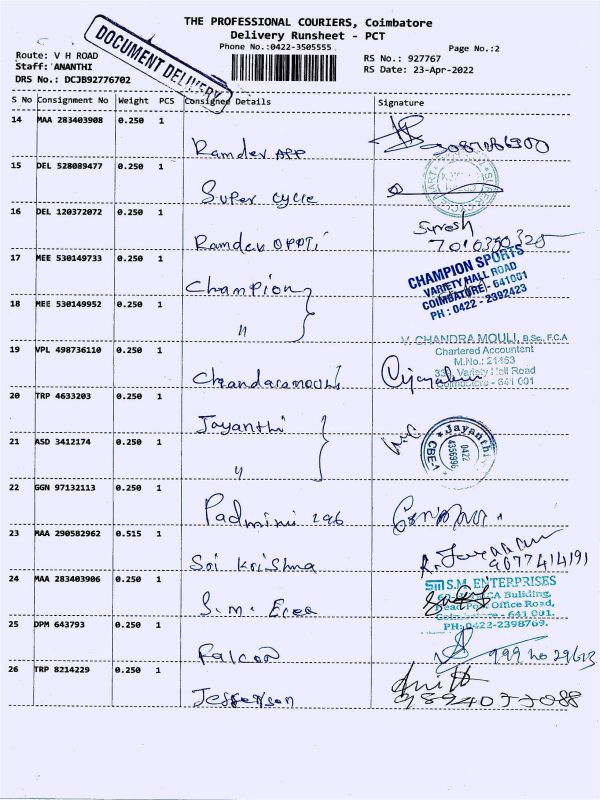 THE PROFESSIONAL COURIERS, Coimbatore
Delivery Runsheet - PCT
Phone No.:0422-3505555
Page No.:2
DOCUMENT DELIVERY
Route: V H ROAD
Staff: ANANTHI
DRS No.: DCJB92776702
RS No.: 927767
RS Date: 23-Apr-2022
S No Consignment No Weight PCS Consignee Details Signature
14 MAA 283403908 0.250 1
Ramdev APP
15 DEL 528089477 0.250 1
Super cycle
16 DEL 120372072 0.250 1
Ramdev OPPTi
Suresh
7010350325
17 MEE 530149733 0.250 1
Champion
CHAMPION SPORTS
VARIETY HALL ROAD
COIMBATORE - 641001
PH : 0422 - 2392423
18 MEE 530149952 0.250 1
"
19 VPL 498736110 0.250 1
Chandaramouli
V. CHANDRA MOULI, B.Sc., F.C.A
Chartered Accountant
M.No.: 21463
Variety Hall Road
Coimbatore - 641 001
20 TRP 4633203 0.250 1
Jayanthi
Jayanthi
0422
CBE-1
21 ASD 3412174 0.250 1
"
22 GGN 97132113 0.250 1
Padmini
23 MAA 290582962 0.515 1
Sri Krishna
9077414191
24 MAA 283403906 0.250 1
S.M. Enter
SM S.M. ENTERPRISES
Building,
Head Post Office Road,
Coimbatore - 641 001.
PH: 0422-2398769.
25 DPM 643793 0.250 1
Falcon
26 TRP 8214229 0.250 1
Jefferson